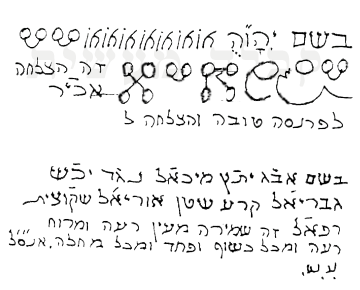 בשם יְהֹוָה אוֹאוֹאוֹאוֹאוֹאוֹאוֹ
זה הצלחה
אכיר
לפרנסה טובה והצלחה ל
בשם אבג יתץ מיכאל נגד יכש
גבריאל קרע שטן אוריאל שקוצית
רפאל זה שמירה מעין רעה ומרוח
רעה ומכל כשוף ופחד ומכל מחלה. אנסל
ע.ש.